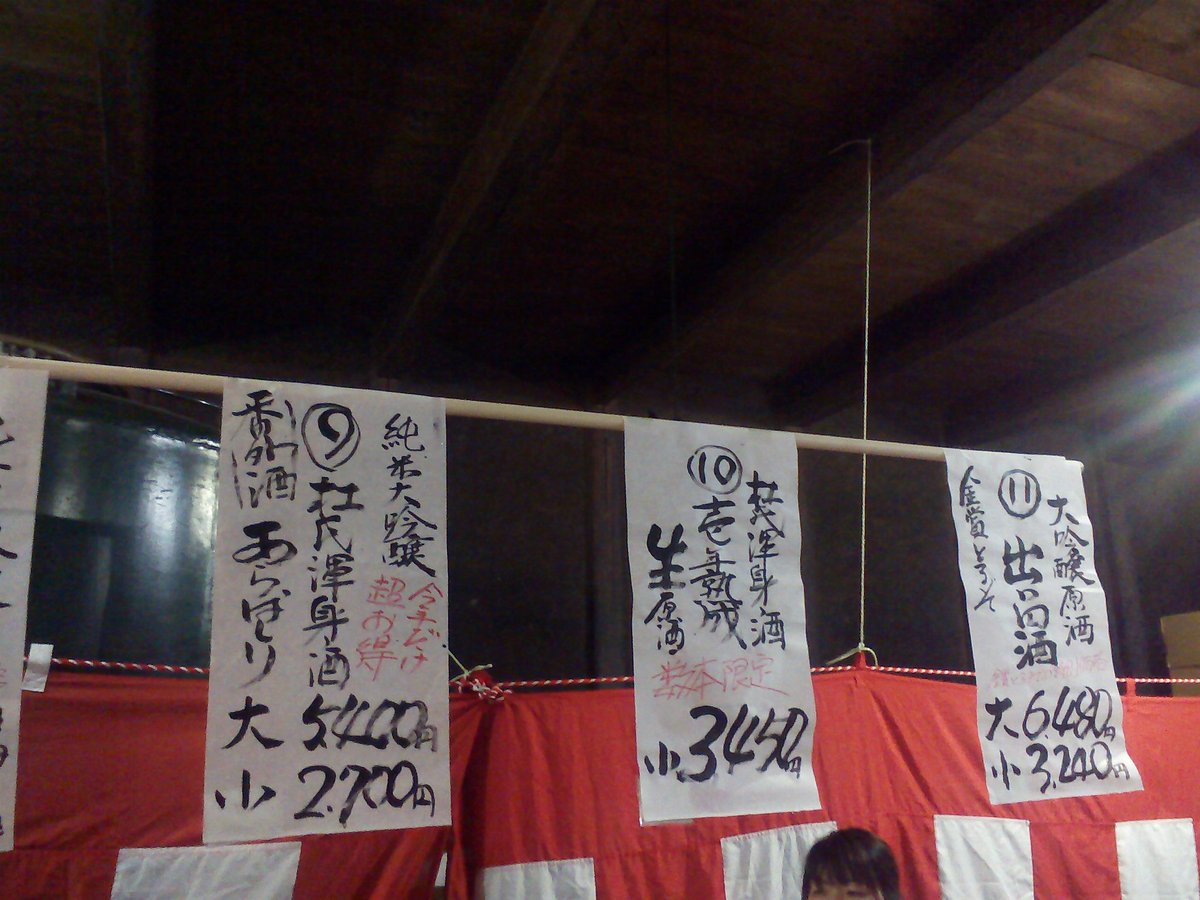 純米大吟醸
今年だけ
超お得
⑨
杜氏渾身酒
番外酒
あらばしり
大 5,400円
小 2,700円
杜氏渾身酒
⑩
壱年熟成
生原酒
数本限定
小 3,450円
大吟醸原酒
⑪
出品酒
大 6,480円
小 3,240円